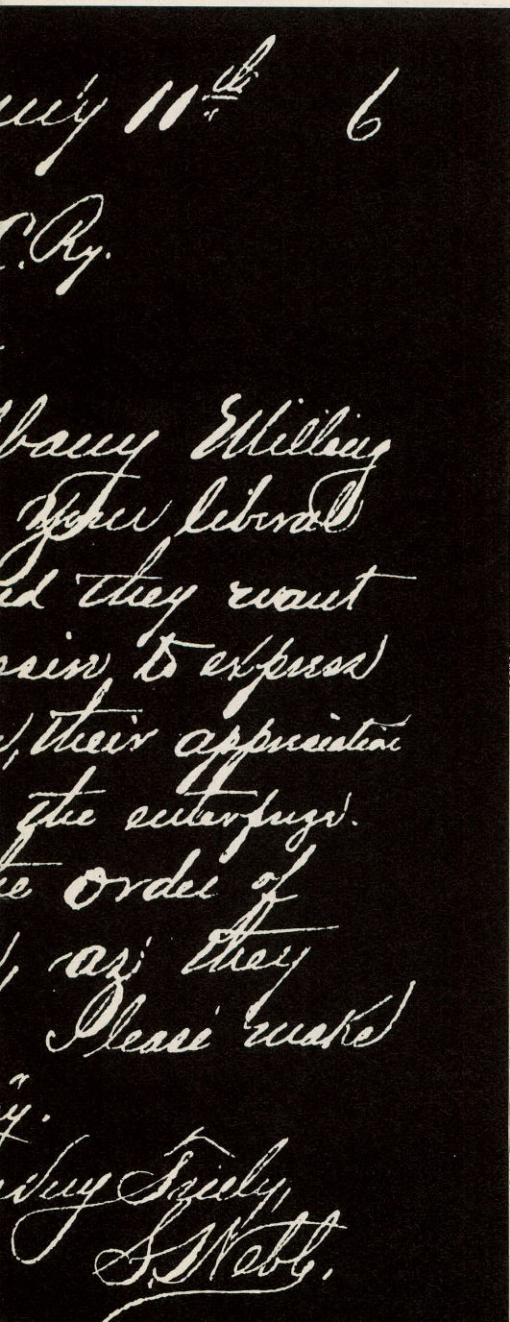 11th 6
C. Ry.
bany Milling
your liberal
they want
to express
their appreciation
the enterprize.
order of
as they
Please make
Truly,
S. Webb.